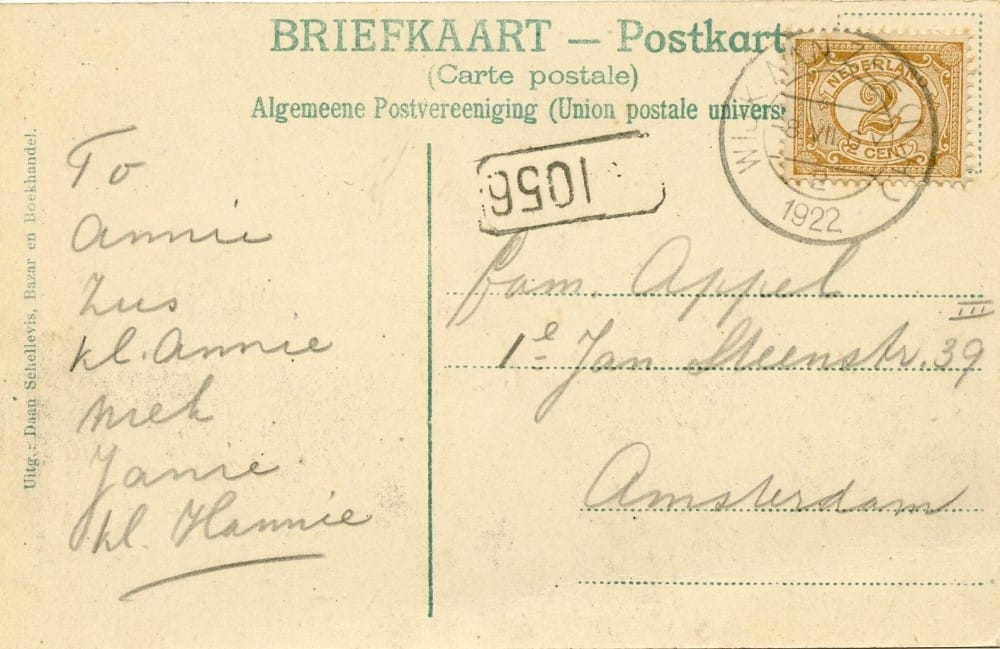 BRIEFKAART — Postkart
(Carte postale)
Algemeene Postvereeniging (Union postale univers
NEDERLAND
2
CENT
WIJK AAN ZEE
8 VII
1922
1056
Uitg.: Daan Schellevis, Bazar en Boekhandel.
To
Annie
Zus
kl. Annie
Niek
Janie
kl. Hannie
Fam. Appel
1e Jan Steenstr. 39 III
Amsterdam